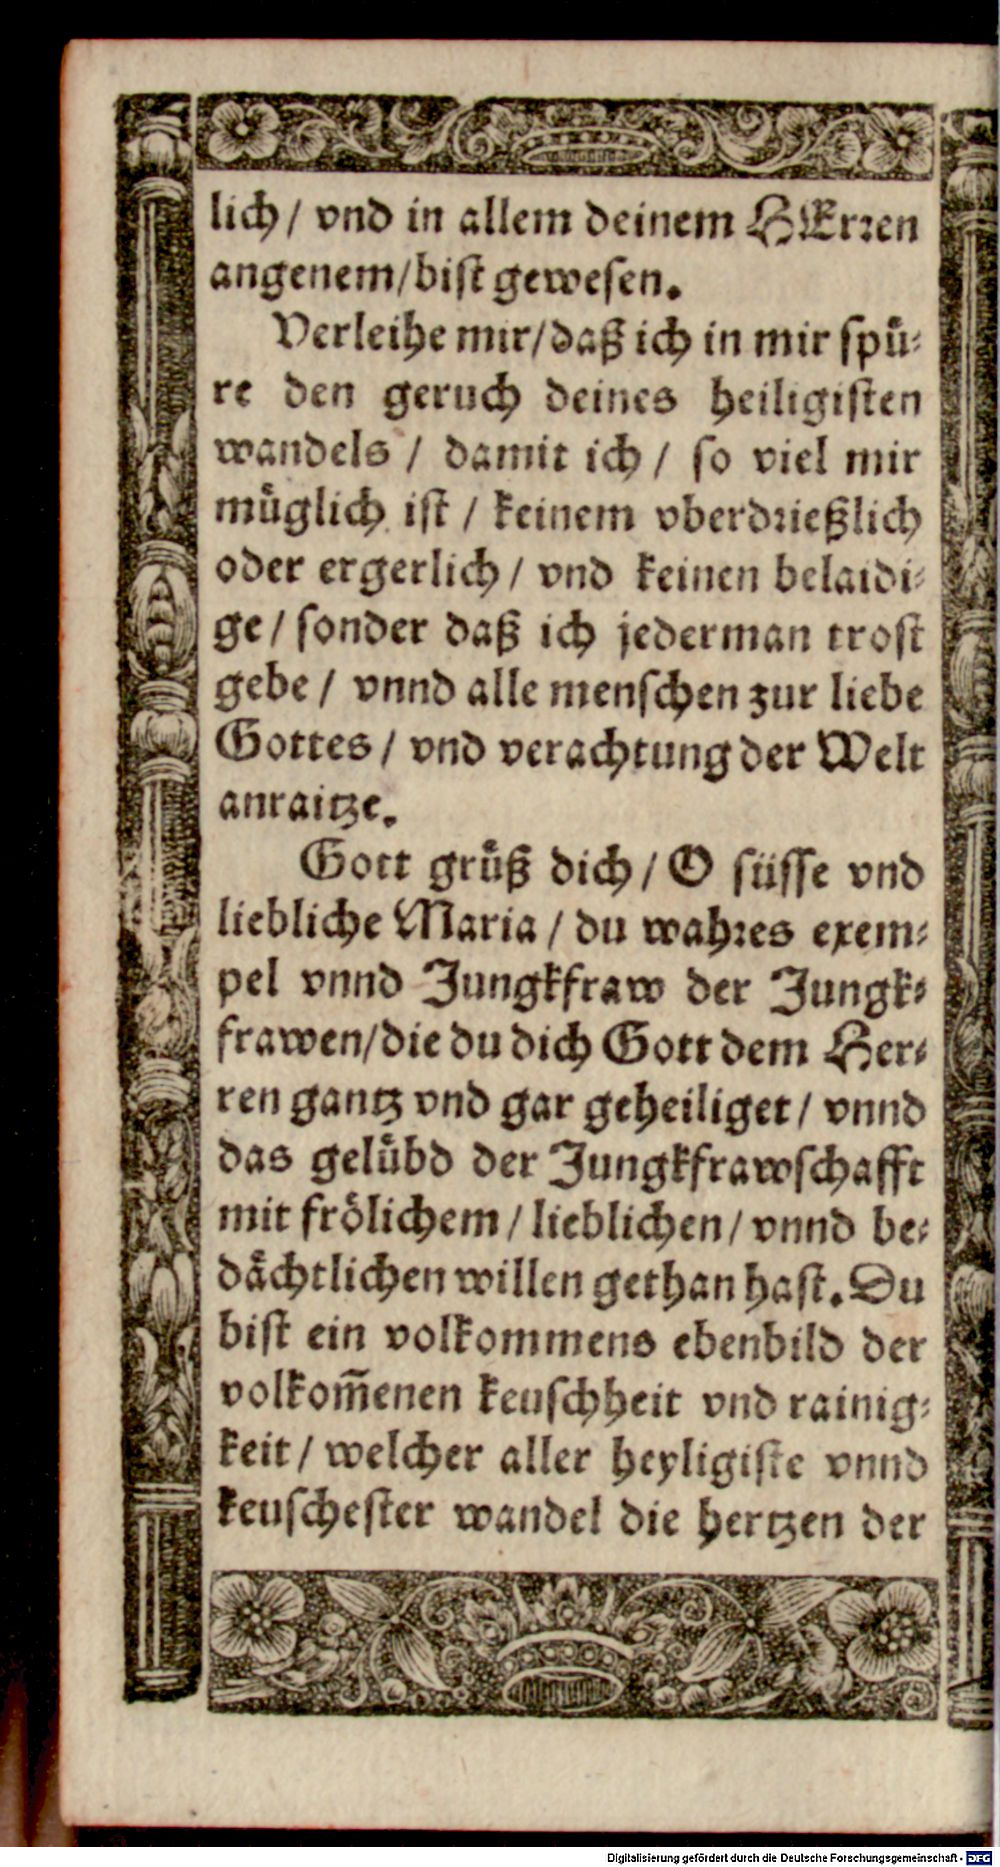 lich / vnd in allem deinem HErꝛen
angenem/bist gewesen.
Verleihe mir/daß ich in mir spuͤ⸗
re den geruch deines heiligisten
wandels / damit ich / so viel mir
muͤglich ist / keinem vberdꝛießlich
oder ergerlich / vnd keinen belaidi⸗
ge / sonder daß ich jederman trost
gebe / vnnd alle menschen zur liebe
Gottes / vnd verachtung der Welt
anraitze.
Gott gruͤß dich / O süsse vnd
liebliche Maria / du wahꝛes exem⸗
pel vnnd Jungkfraw der Jungk⸗
frawen/die du dich Gott dem Her⸗
ren gantz vnd gar geheiliget / vnnd
das geluͤbd der Jungkfrawschafft
mit froͤlichem / lieblichen / vnnd be⸗
daͤchtlichen willen gethan hast. Du
bist ein volkommens ebenbild der
volkom̃enen keuschheit vnd rainig⸗
keit / welcher aller heyligiste vnnd
keuschester wandel die hertzen der
Digitalisierung gefördert durch die Deutsche Forschungsgemeinschaft - DFG